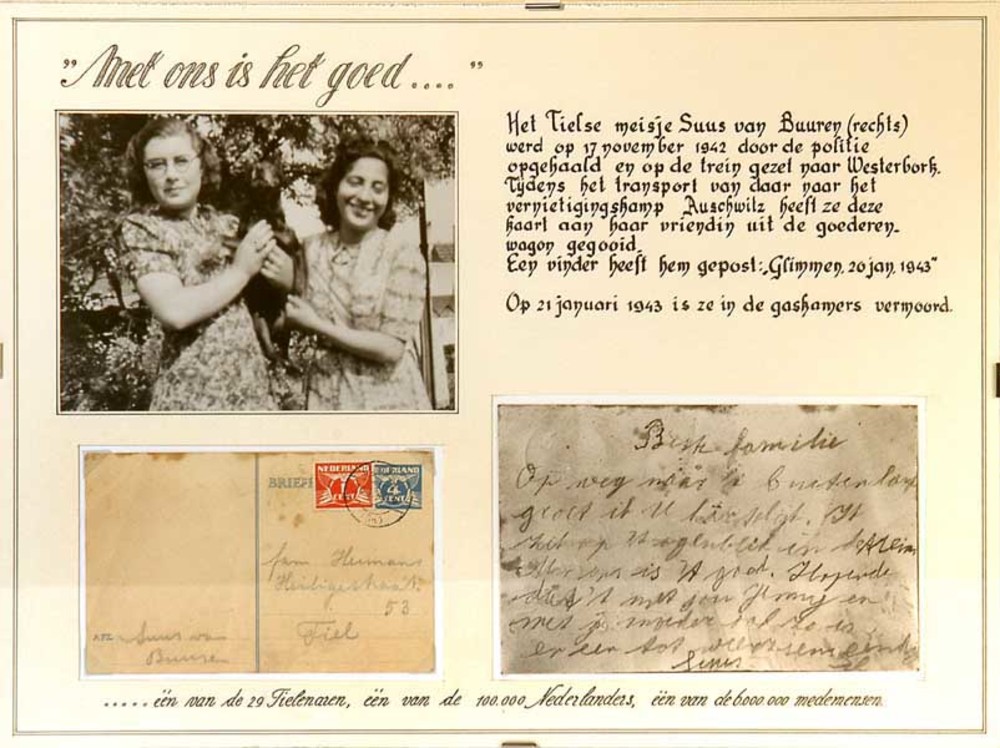 „Met ons is het goed...."
Het Tielse meisje Suus van Buuren (rechts)
werd op 17 november 1942 door de politie
opgehaald en op de trein gezet naar Westerbork.
Tijdens het transport van daar naar het
vernietigingskamp Auschwitz heeft ze deze
kaart aan haar vriendin uit de goederen-
wagon gegooid.
Een vinder heeft hem gepost: „Glimmen, 20 jan. 1943"
Op 21 januari 1943 is ze in de gaskamers vermoord.
BRIEF
NEDERLAND NEDERLAND
1 CENT 4 CENT
fam Heumans
Heiligestraat
53
Tiel
AFZ. Suus van
Buuren
Beste familie
Op weg naar 't buitenland
groet ik U
zit op 't ogenblik in de trein
Met ons is 't goed. Hopende
dat 't met jou en
met je moeder ook zo is
en tot weerziens
Suus
.....één van de 29 Tielenaren, één van de 100.000 Nederlanders, één van de 6.000.000 medemensen.